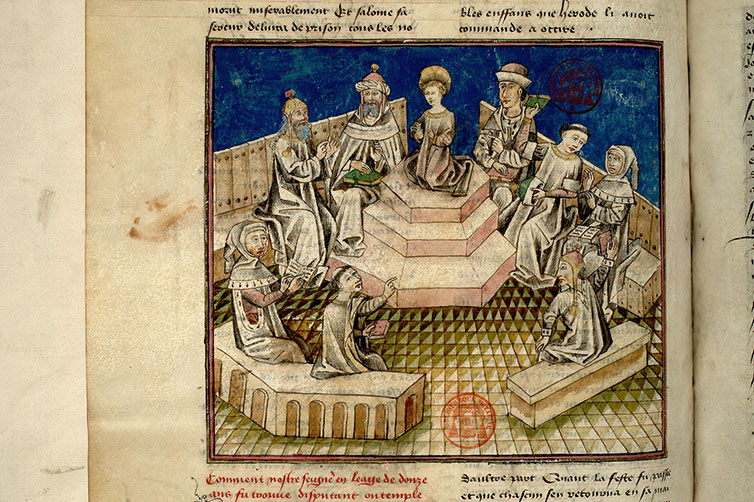 morut miserablement Et salome sa
seceur delivra de prison tous les no
bles enffans que herode li avoit
commande a occire
Comment nostre seigne en leage de douze
ans fu trouve disputant ou temple
Daultre part Quant la feste fu passe
et que chascun sen retourna en sa mai